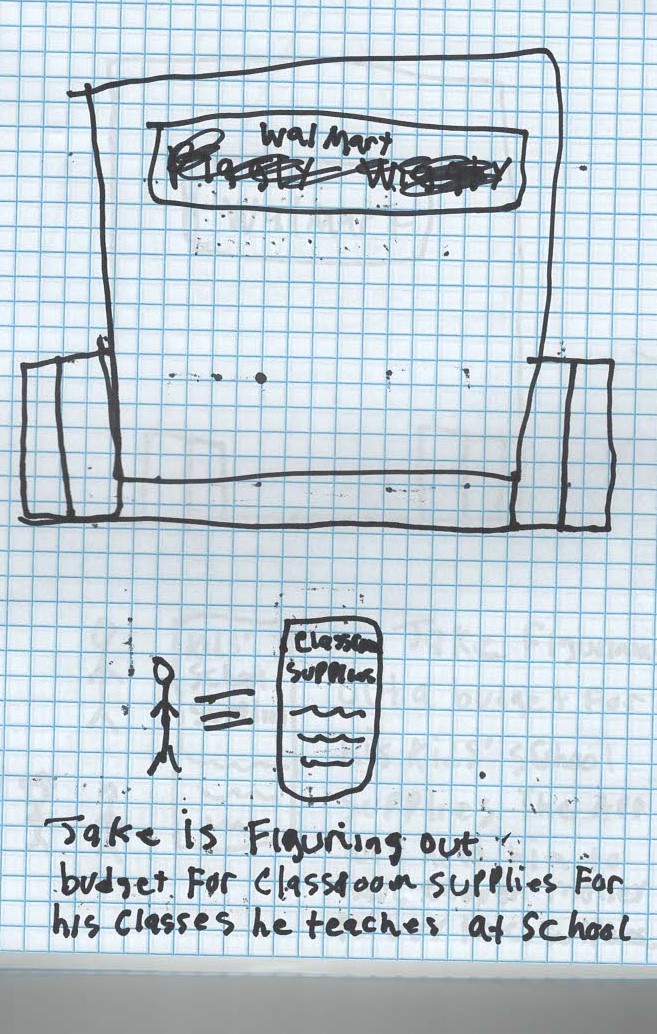 Wal Mart
Classroom
Supplies
Jake is Figuring out
budget For Classroom supplies For
his Classes he teaches at School